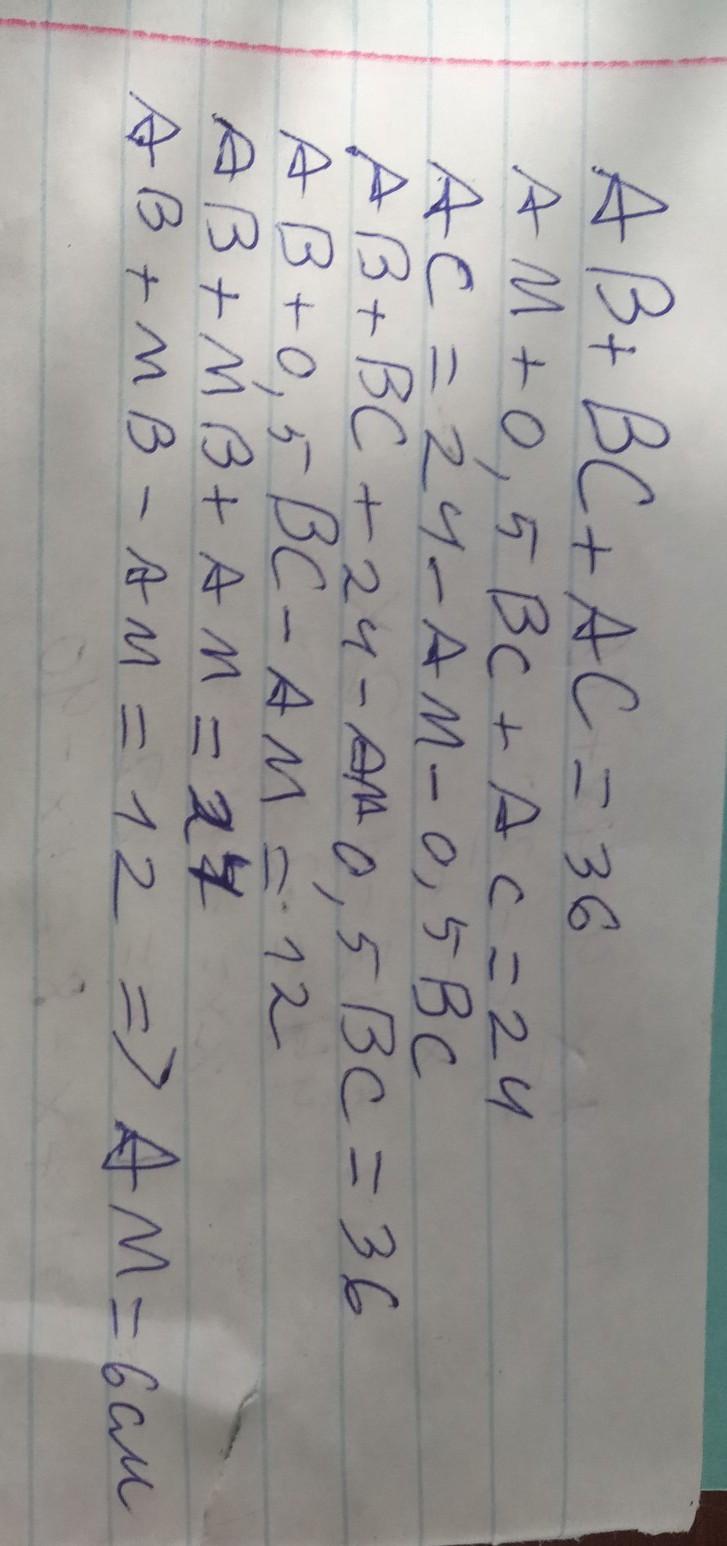 AB+BC+AC=36
AM+0,5BC+AC=24
AC=24-AM-0,5BC
AB+BC+24-AM-0,5BC=36
AB+0,5BC-AM=12
AB+MB+AM=24
AB+MB-AM=12 => AM=6см